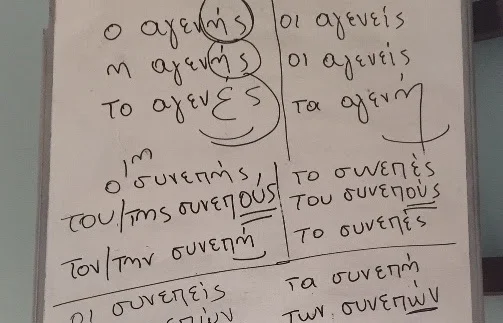 ο αγενής | οι αγενείς
η αγενής | οι αγενείς
το αγενές | τα αγενή
ο/η συνεπής, | το συνεπές
του/της συνεπούς | του συνεπούς
τον/την συνεπή | το συνεπές
οι συνεπείς | τα συνεπή
των συνεπών